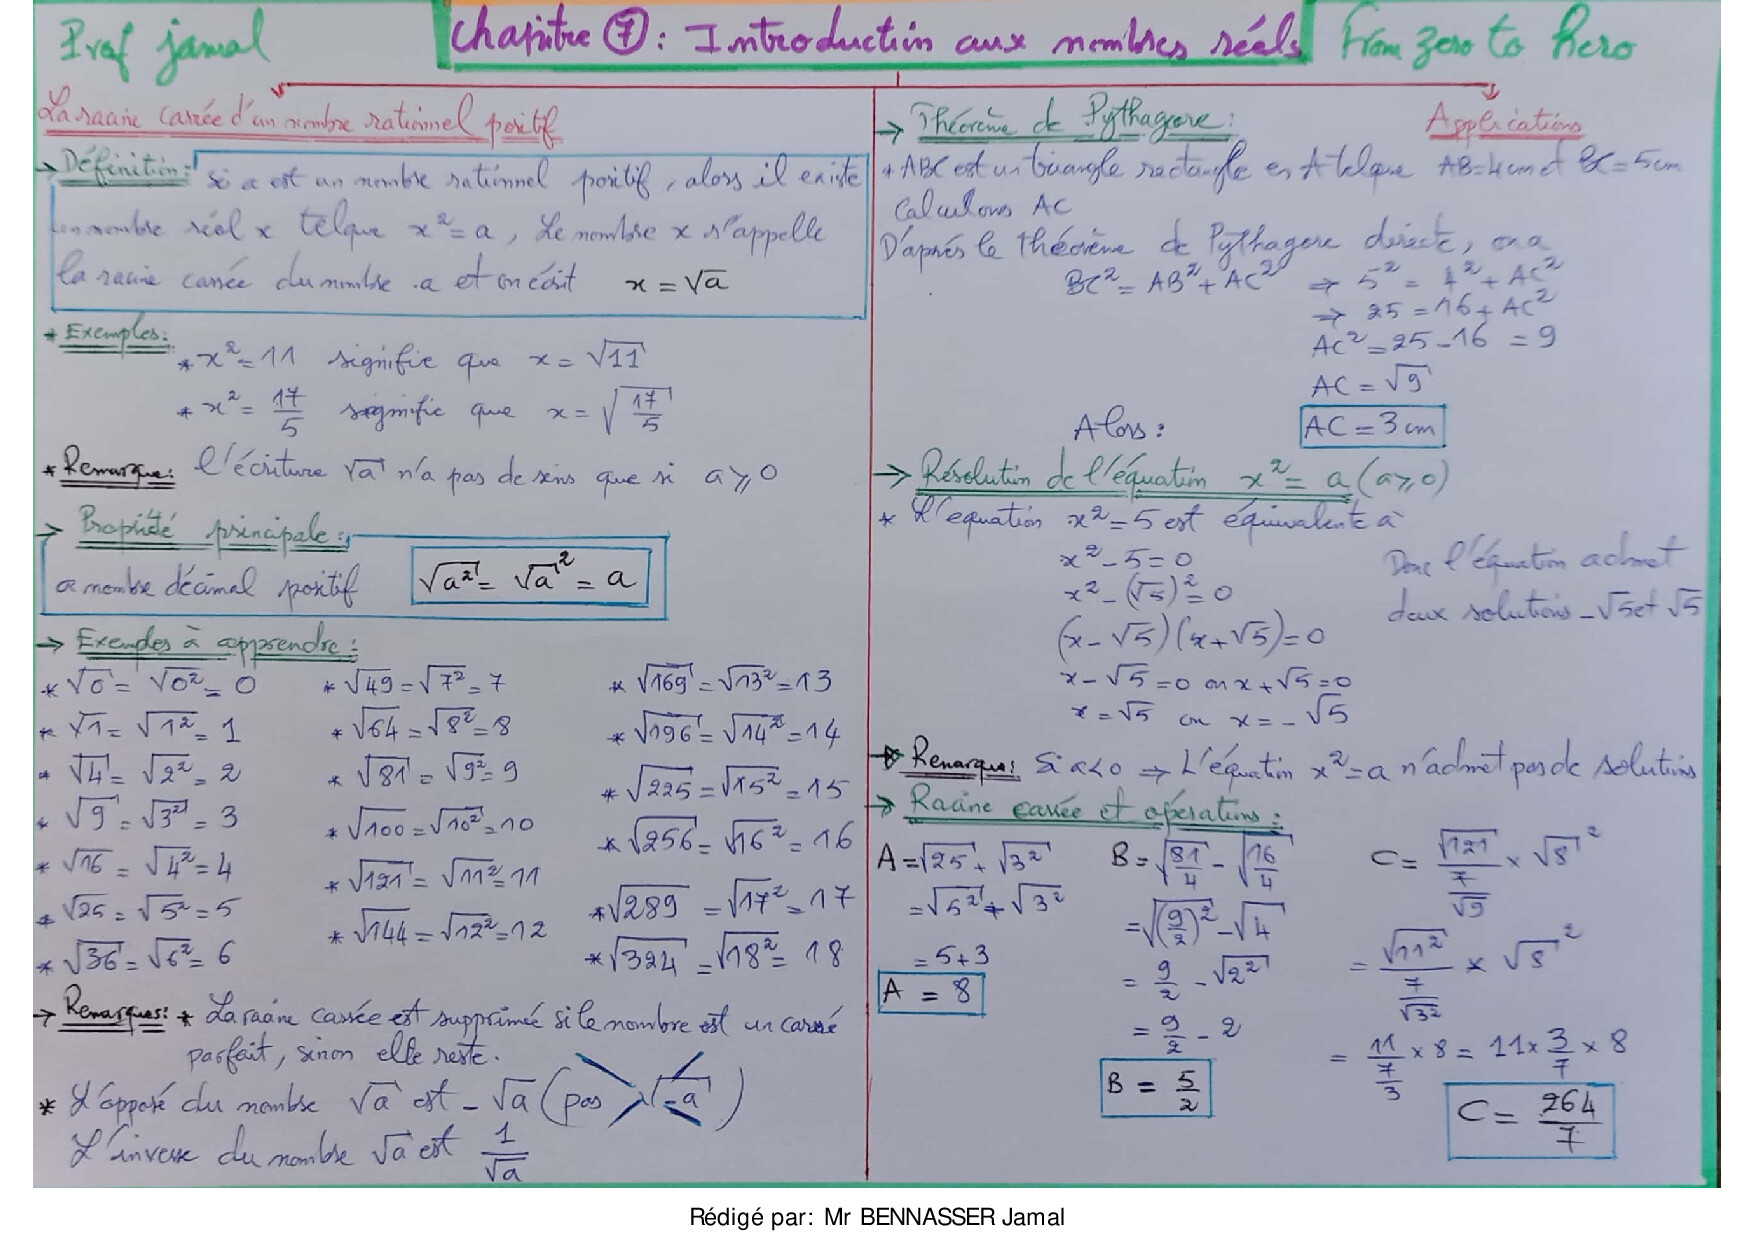 Prof jamal
Chapitre 7 : Introduction aux nombres réels
From zero to hero
La racine carrée d'un nombre rationnel positif
→ Définition : Si a est un nombre rationnel positif, alors il existe
un nombre réel x telque x² = a, Le nombre x s'appelle
la racine carrée du nombre a et on écrit x = √a
* Exemples :
* x² = 11 signifie que x = √11
* x² = 17/5 signifie que x = √(17/5)
* Remarque : L'écriture √a n'a pas de sens que si a ⩾ 0
→ Propriété principale :
a nombre décimal positif √a² = √a² = a
→ Exemples à apprendre :
* √0 = √0² = 0 * √49 = √7² = 7 * √169 = √13² = 13
* √1 = √1² = 1 * √64 = √8² = 8 * √196 = √14² = 14
* √4 = √2² = 2 * √81 = √9² = 9 * √225 = √15² = 15
* √9 = √3² = 3 * √100 = √10² = 10 * √256 = √16² = 16
* √16 = √4² = 4 * √121 = √11² = 11 * √289 = √17² = 17
* √25 = √5² = 5 * √144 = √12² = 12 * √324 = √18² = 18
* √36 = √6² = 6
→ Remarques : * La racine carrée est supprimée si le nombre est un carré
parfait, sinon elle reste.
* L'opposé du nombre √a est -√a (pas √-a)
L'inverse du nombre √a est 1/√a
Applications
→ Théorème de Pythagore :
* ABC est un triangle rectangle en A telque AB = 4cm et BC = 5cm
Calculons AC
D'après le théorème de Pythagore directe, on a
BC² = AB² + AC² ⇒ 5² = 4² + AC²
⇒ 25 = 16 + AC²
AC² = 25 - 16 = 9
AC = √9
Alors : AC = 3 cm
→ Résolution de l'équation x² = a (a ⩾ 0)
* L'equation x² = 5 est équivalente à
x² - 5 = 0
x² - (√5)² = 0
(x - √5)(x + √5) = 0
x - √5 = 0 ou x + √5 = 0
x = √5 ou x = -√5
Donc l'équation admet
deux solutions -√5 et √5
→ Remarque : Si a < 0 ⇒ L'équation x² = a n'admet pas de solutions
→ Racine carrée et opérations :
A = √25 + √3²
= √5² + √3²
= 5 + 3
A = 8
B = √(81/4) - √(16/4)
= √(9/2)² - √4
= 9/2 - √2²
= 9/2 - 2
B = 5/2
C = √121/(7/√9) × √8²
= √11²/(7/√3²) × √8²
= 11/(7/3) × 8 = 11 × 3/7 × 8
C = 264/7
Rédigé par: Mr BENNASSER Jamal